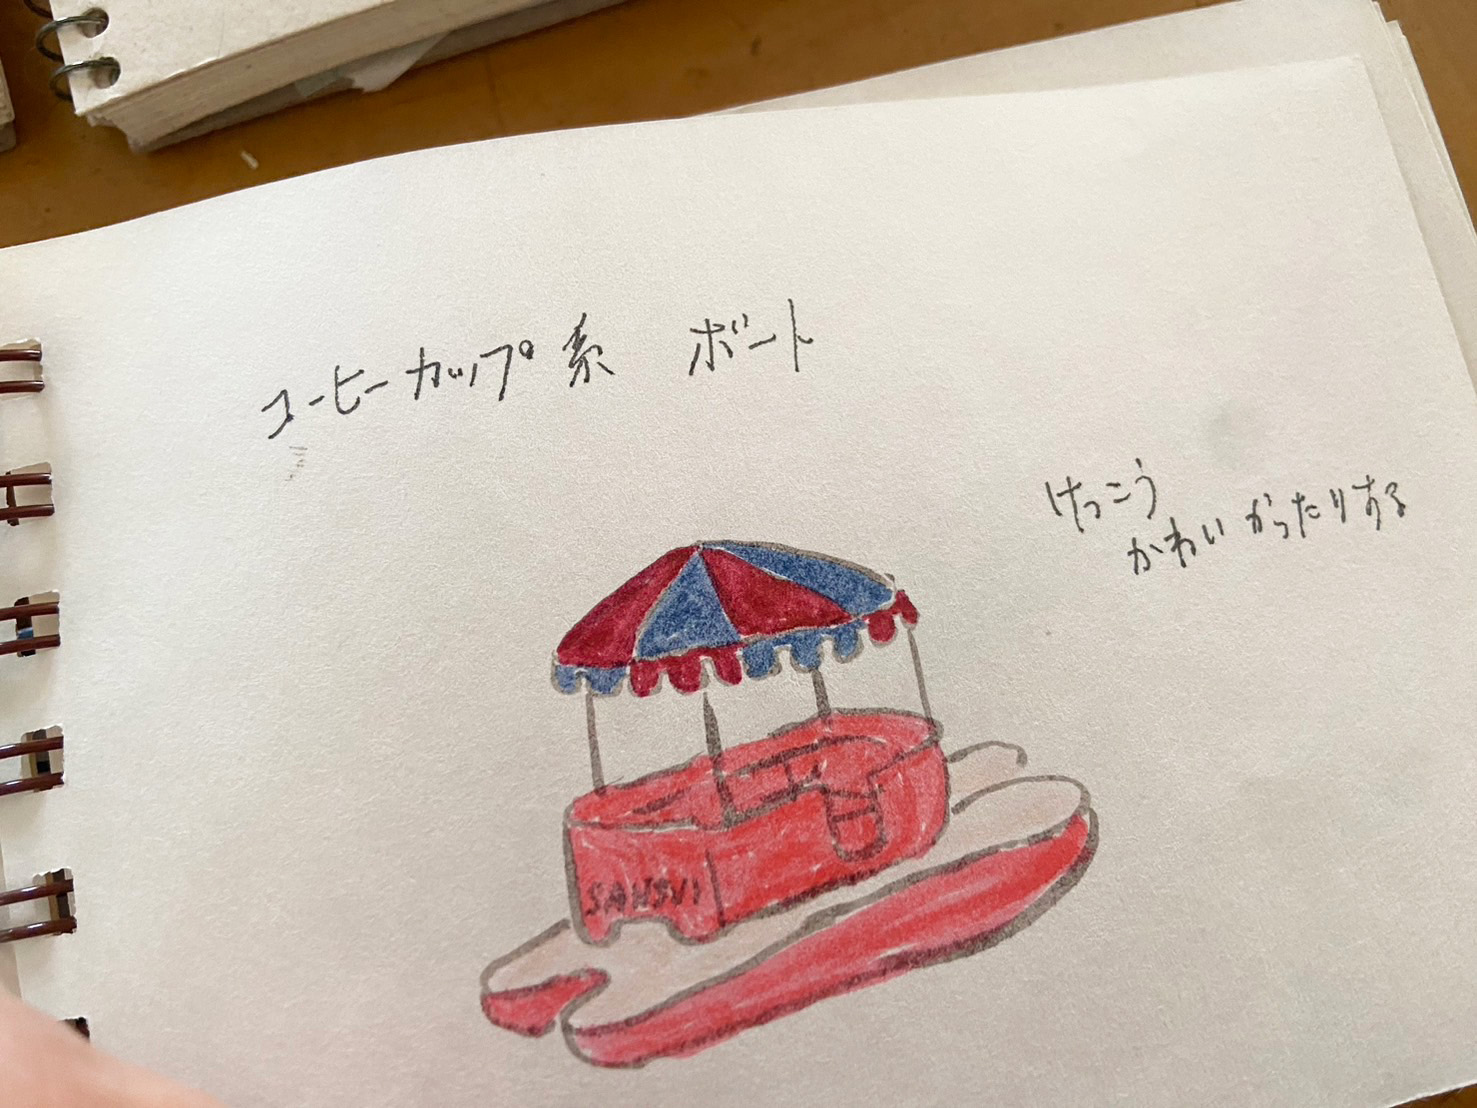 コーヒーカップ系 ボート
けっこう
かわいかったりする
SANSUI